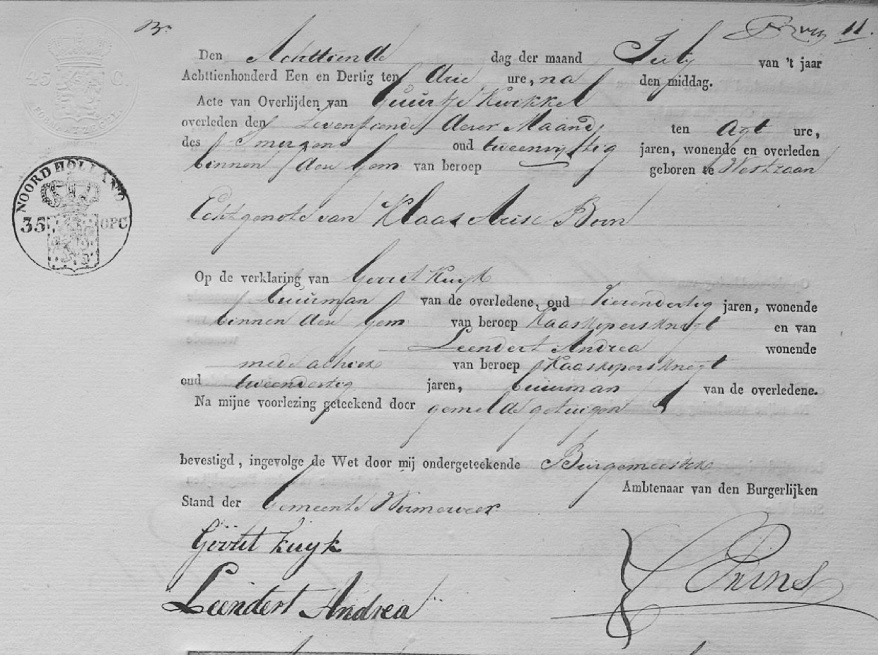 11.
Den Achttiende dag der maand July van 't jaar
Achttienhonderd Een en Dertig ten drie ure, na den middag.
Acte van Overlijden van Guurtje
overleden den Zeventiende dezer Maand ten Agt ure,
des smorgens oud jaren, wonende en overleden
binnen den Gem van beroep geboren te Westzaan
Echtgenote van Klaas Arisz Boon
Op de verklaring van Gerrit Kuyk
buurman van de overledene, oud Vierendertig jaren, wonende
binnen den Gem van beroep Kaaskopersknegt en van
Leendert Andrea wonende
mede alhier van beroep Kaaskopersknegt
oud tweendertig jaren, buurman van de overledene.
Na mijne voorlezing geteekend door gemelde getuigen
bevestigd, ingevolge de Wet door mij ondergeteekende Burgemeester
Ambtenaar van den Burgerlijken
Stand der Gemeente Wormerveer
Gerrit Kuyk
Prins
Leendert Andrea
NOORD HOLLAND
35 OPC